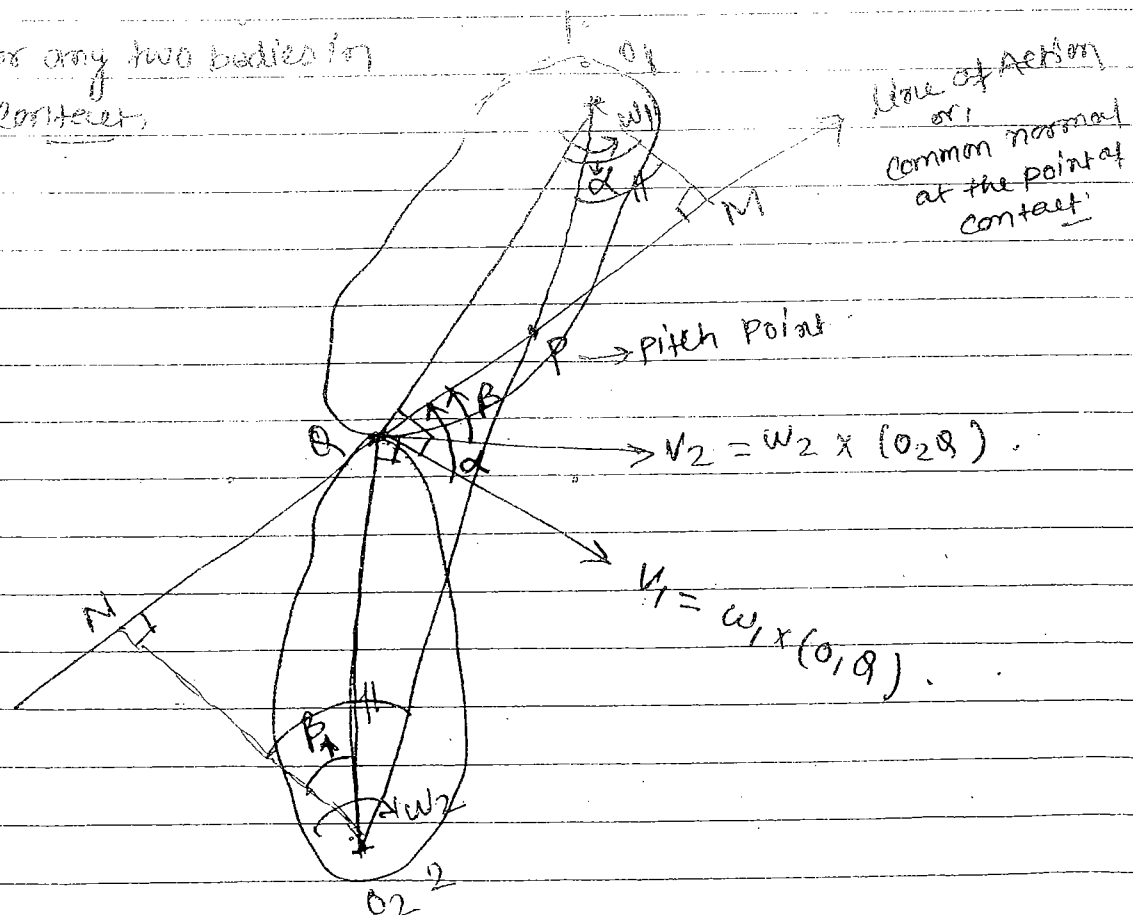 or any two bodies in
contact,
1
O1
ω1
α
Line of Action
or,
common normal
at the point of
contact
M
P → pitch point
β
Q
α
V2 = ω2 x (O2Q) .
V1 = ω1 x (O1Q) .
N
β
ω2
2
O2